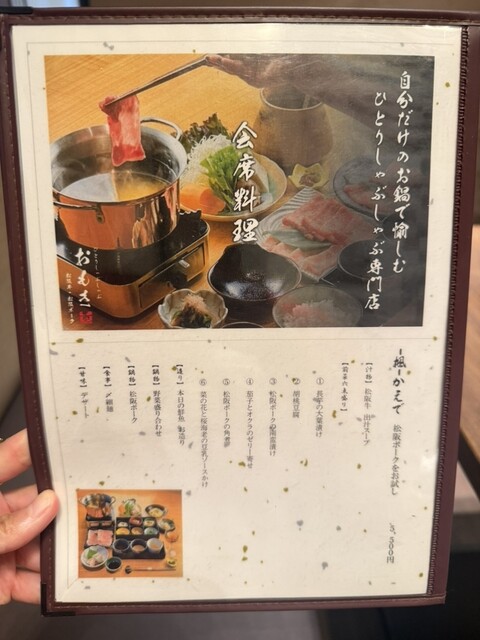 自分だけのお鍋で愉しむ
ひとりしゃぶしゃぶ専門店
会席料理
ひとりしゃぶしゃぶ
おもき
松阪牛・松阪ポーク
-楓-かえで 松阪ポークをお試し 5,500円
松阪牛 出汁スープ
【前菜六点盛り】
① 長芋の大葉漬け
② 胡桃豆腐
③ 松阪ポークの南蛮漬け
④ 茄子とオクラのゼリー寄せ
⑤ 松阪ポークの角煮
⑥ 菜の花と桜海老の豆乳ソースかけ
【造り】 本日の鮮魚 お造り
【鍋物】 野菜盛り合わせ
【鍋物】 松阪ポーク
【食事】 〆細麺
【甘味】 デザート